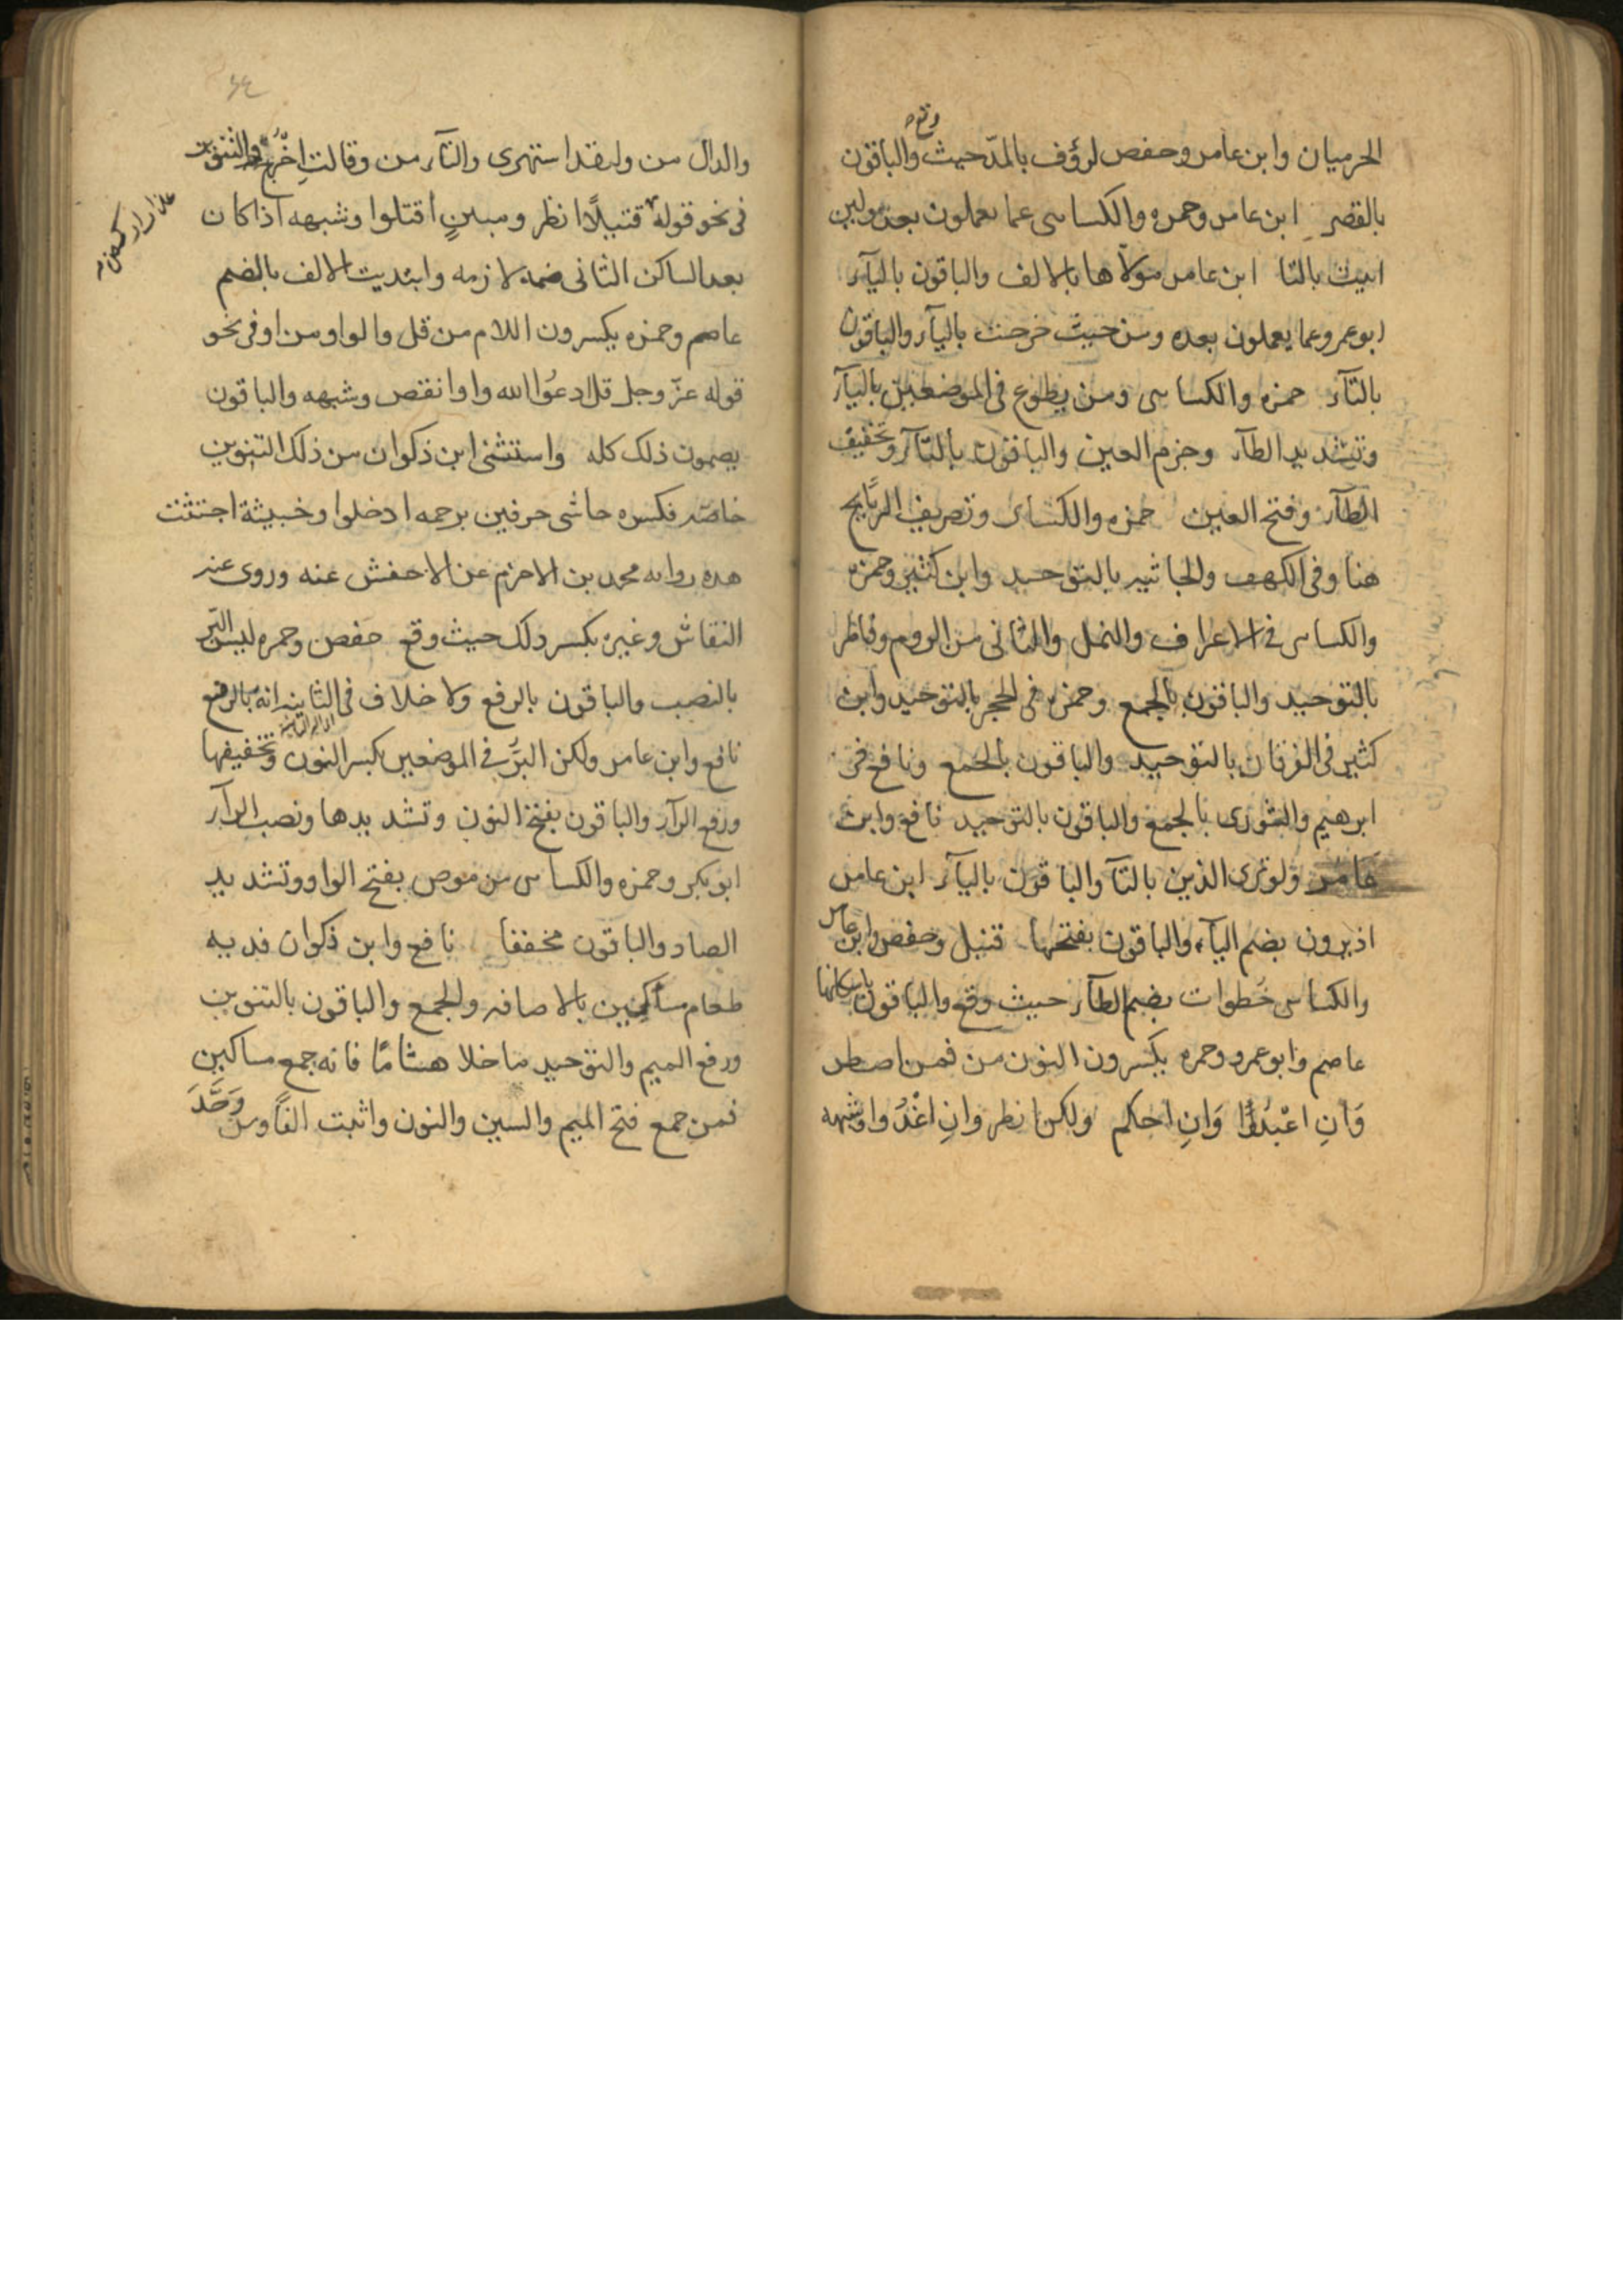 الحرميان وابن عامر وحفص لرؤف بالمدّ حيث وقع والباقون
بالقصر ابن عامر وحمزه والكسائى عما تعملون بعده ولين
اتيت بالتا ابن عامر مولاها بالالف والباقون باليآء
ابو عمرو عما يعملون بعده ومن حيث خرجت باليآء والباقون
بالتآء حمزه والكسائى ومن يطوع فى الموضعين باليآء
وتشديد الطآء وجزم العين والباقون بالتآء وتخفيف
الطآء وفتح العين حمزه والكسائى وتصريف الرياح
هنا وفى الكهف والجاثيه بالتوحيد وابن كثير وحمزه
والكسائى فى الاعراف والنمل والثانى من الروم وفاطر
بالتوحيد والباقون بالجمع وحمزه فى الحجر بالتوحيد وابن
كثير فى الفرقان بالتوحيد والباقون بالجمع ونافع فى
ابرهيم والشورى بالجمع والباقون بالتوحيد نافع وابن
عامر ولو ترى الذين بالتآ والباقون باليآء ابن عامر
اذ يرون بضم اليآء والباقون بفتحها قنبل وحفص وابن عامر
والكسائى خُطوات بضم الطآء حيث وقع والباقون باسكانها
عاصم وابو عمرو وحمزه يكسرون النون من فمن اضطر
وَاَنِ اعْبُدُوا وَاَنِ احكم ولكن انظر وانِ اغْدُوا وشبهه
والدال من ولقد استهزى والتآء من وقالتِ اخْرُج والتنوين
فى نحو قوله فتيلًا انظر ومبينٍ اقتلوا وشبهه اذا كان
بعد الساكن الثانى ضمه لازمه وابتديت الالف بالضم
عاصم وحمزه يكسرون اللام من قل والواو من او فى نحو
قوله عزّ وجل قل ادعُوا الله واو انقص وشبهه والباقون
يضمون ذلك كله واستثنى ابن ذكوان من ذلك التنوين
خاصّه فكسره حاشى حرفين برحمه ادخلوا وخبيثة اجتثت
هذه روايه محمد بن الاخرم عن الاخفش عنه وروى عنه
النقاش وغيره بكسر ذلك حيث وقع حفص وحمزه ليس البّر
بالنصب والباقون بالرفع ولا خلاف فى الثانيه انه بالرفع
نافع وابن عامر ولكن البرُّ فى الموضعين بكسر النون وتخفيفها
ورفع الرآء والباقون بفتح النون وتشديدها ونصب الرآء
ابو بكر وحمزه والكسائى من موص بفتح الواو وتشديد
الصاد والباقون مخففا نافع وابن ذكوان فديه
طعام مساكين بالاضافه والجمع والباقون بالتنوين
ورفع الميم والتوحيد ما خلا هشامًا فانه جمع مساكين
فمن جمع فتح الميم والسين والنون واثبت الفًا ومن وَحَّدَ